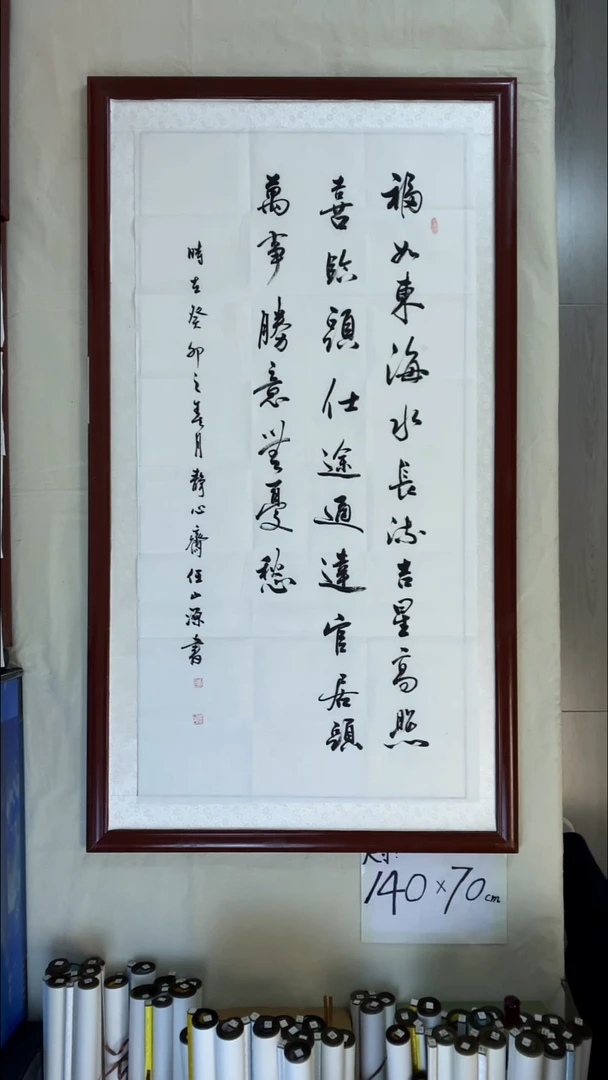 福如東海水長流吉星高照
喜臨頭仕途通達官居頭
萬事勝意無憂愁
時在癸卯之春月靜心齋任山源書
尺寸:
140×70cm